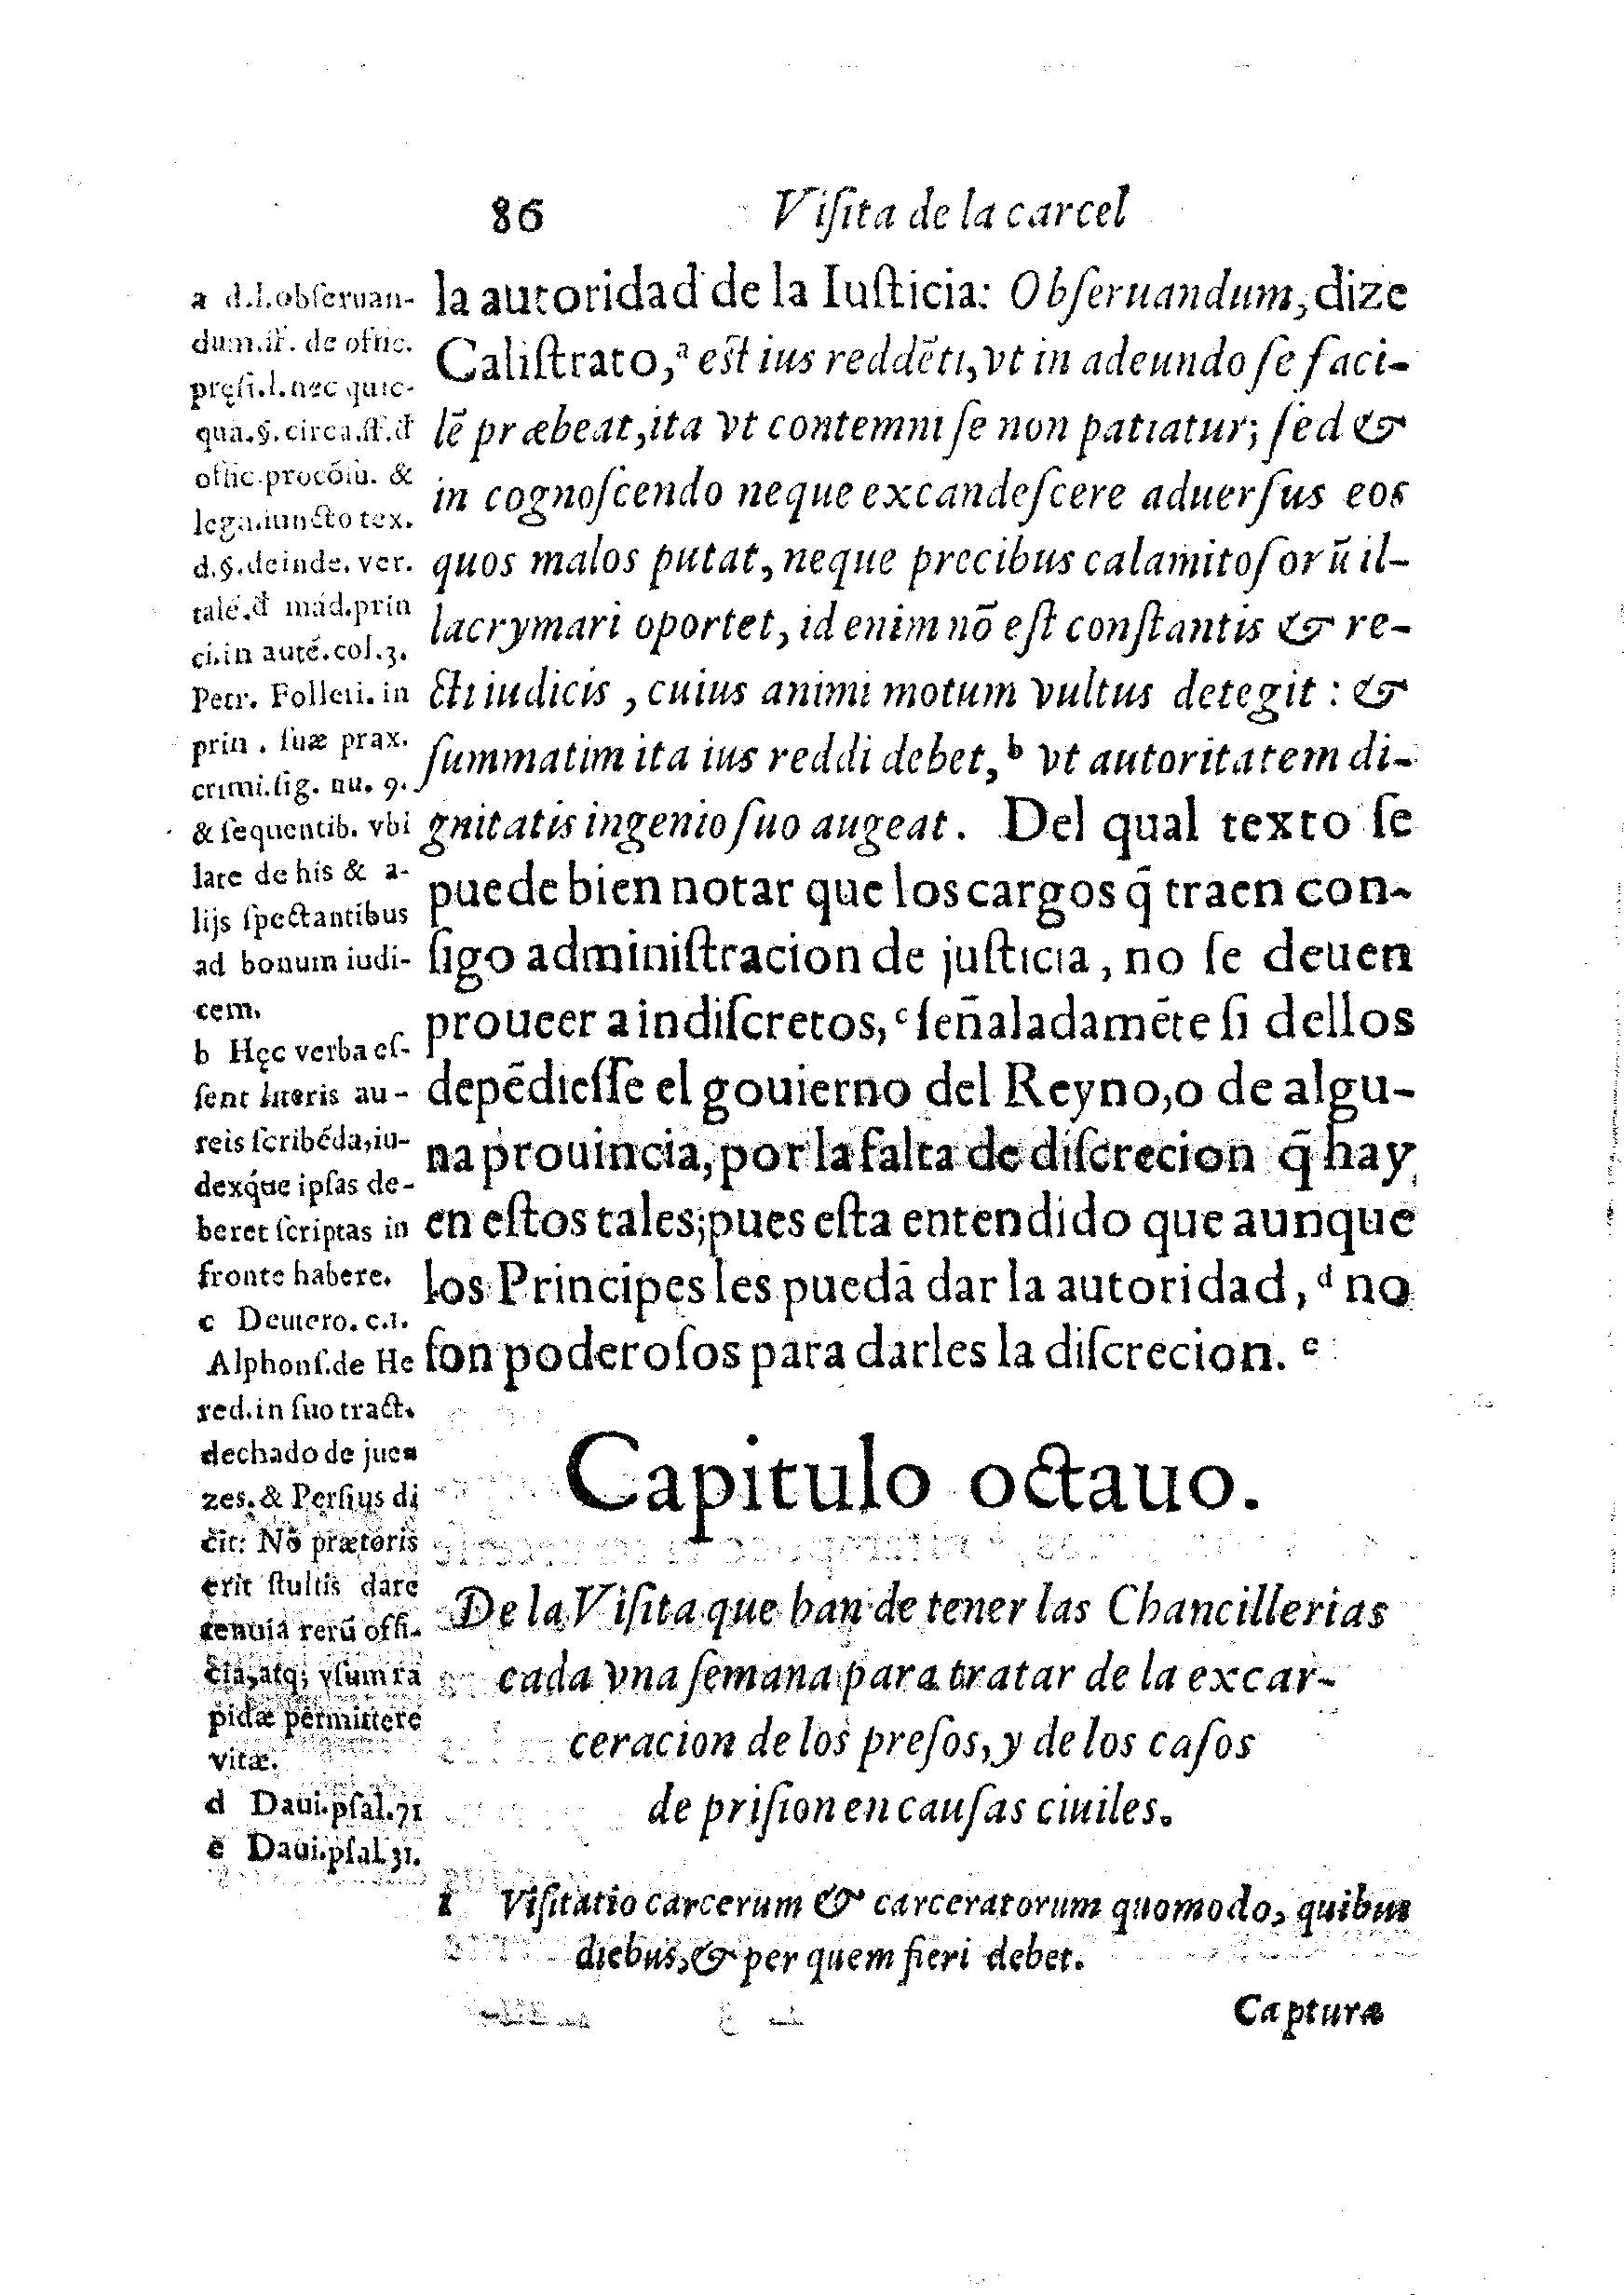 86
Viſita de la carcel
la autoridad de la Iuſticia: Obſeruandum, dize
Caliſtrato,ᵃ eſt ius reddẽti, vt in adeundo ſe faci-
lẽ præbeat, ita vt contemni ſe non patiatur; ſed &
in cognoſcendo neque excandeſcere aduerſus eos
quos malos putat, neque precibus calamitoſorũ il-
lacrymari oportet, id enim nõ eſt conſtantis & re-
cti iudicis, cuius animi motum vultus detegit: &
ſummatim ita ius reddi debet,ᵇ vt autoritatem di-
gnitatis ingenio ſuo augeat. Del qual texto ſe
puede bien notar que los cargos q̃ traen con-
ſigo adminiſtracion de juſticia, no ſe deuen
proueer a indiſcretos,ᶜ ſeñaladamẽte ſi dellos
depẽdieſſe el gouierno del Reyno, o de algu-
na prouincia, por la falta de diſcrecion q̃ hay
en eſtos tales; pues eſta entendido que aunque
los Principes les puedã dar la autoridad,ᵈ no
ſon poderoſos para darles la diſcrecion.ᵉ
a d.l.obſeruan-
dum.ff. de offic.
pręſi.l.nec quic-
quã.§.circa.ff.đ
offic.procõſu. &
lega.iuncto tex.
d.§.deinde. ver.
talé.đ mád.prin
ci.in auté.col.3.
Petr. Folleri. in
prin. ſuæ prax.
crimi.ſig. nu. 9.
& ſequentib. vbi
late de his & a-
lijs ſpectantibus
ad bonum iudi-
cem.
b Hęc verba eſ-
ſent literis au-
reis ſcribéda, iu-
dexq́ue ipſas de-
beret ſcriptas in
fronte habere.
c Deutero. c.1.
Alphonſ.de He
red.in ſuo tract.
dechado de jue-
zes. & Perſius di
cit: Nõ prætoris
erit ſtultis dare
tenuia rerũ offi-
cia, atq; vſum ra
pidæ permittere
vitæ.
d Daui.pſal.71
e Daui.pſal.31.
Capitulo octauo.
De la Viſita que han de tener las Chancillerias
cada vna ſemana para tratar de la excar-
ceracion de los preſos, y de los caſos
de priſion en cauſas ciuiles.
1 Viſitatio carcerum & carceratorum quomodo, quibus
diebus, & per quem fieri debet.
Capturæ